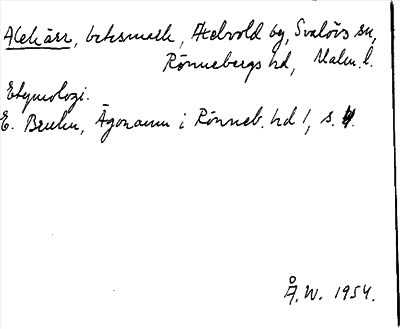 Alekärr, beksmark, Axelvold by, Svalövs sn,
Rönnebergs hd, Malm. l.
Etymologi.
E. Bruhn, Ägonamn i Rönneb. hd 1, s.
Å. W. 1954.